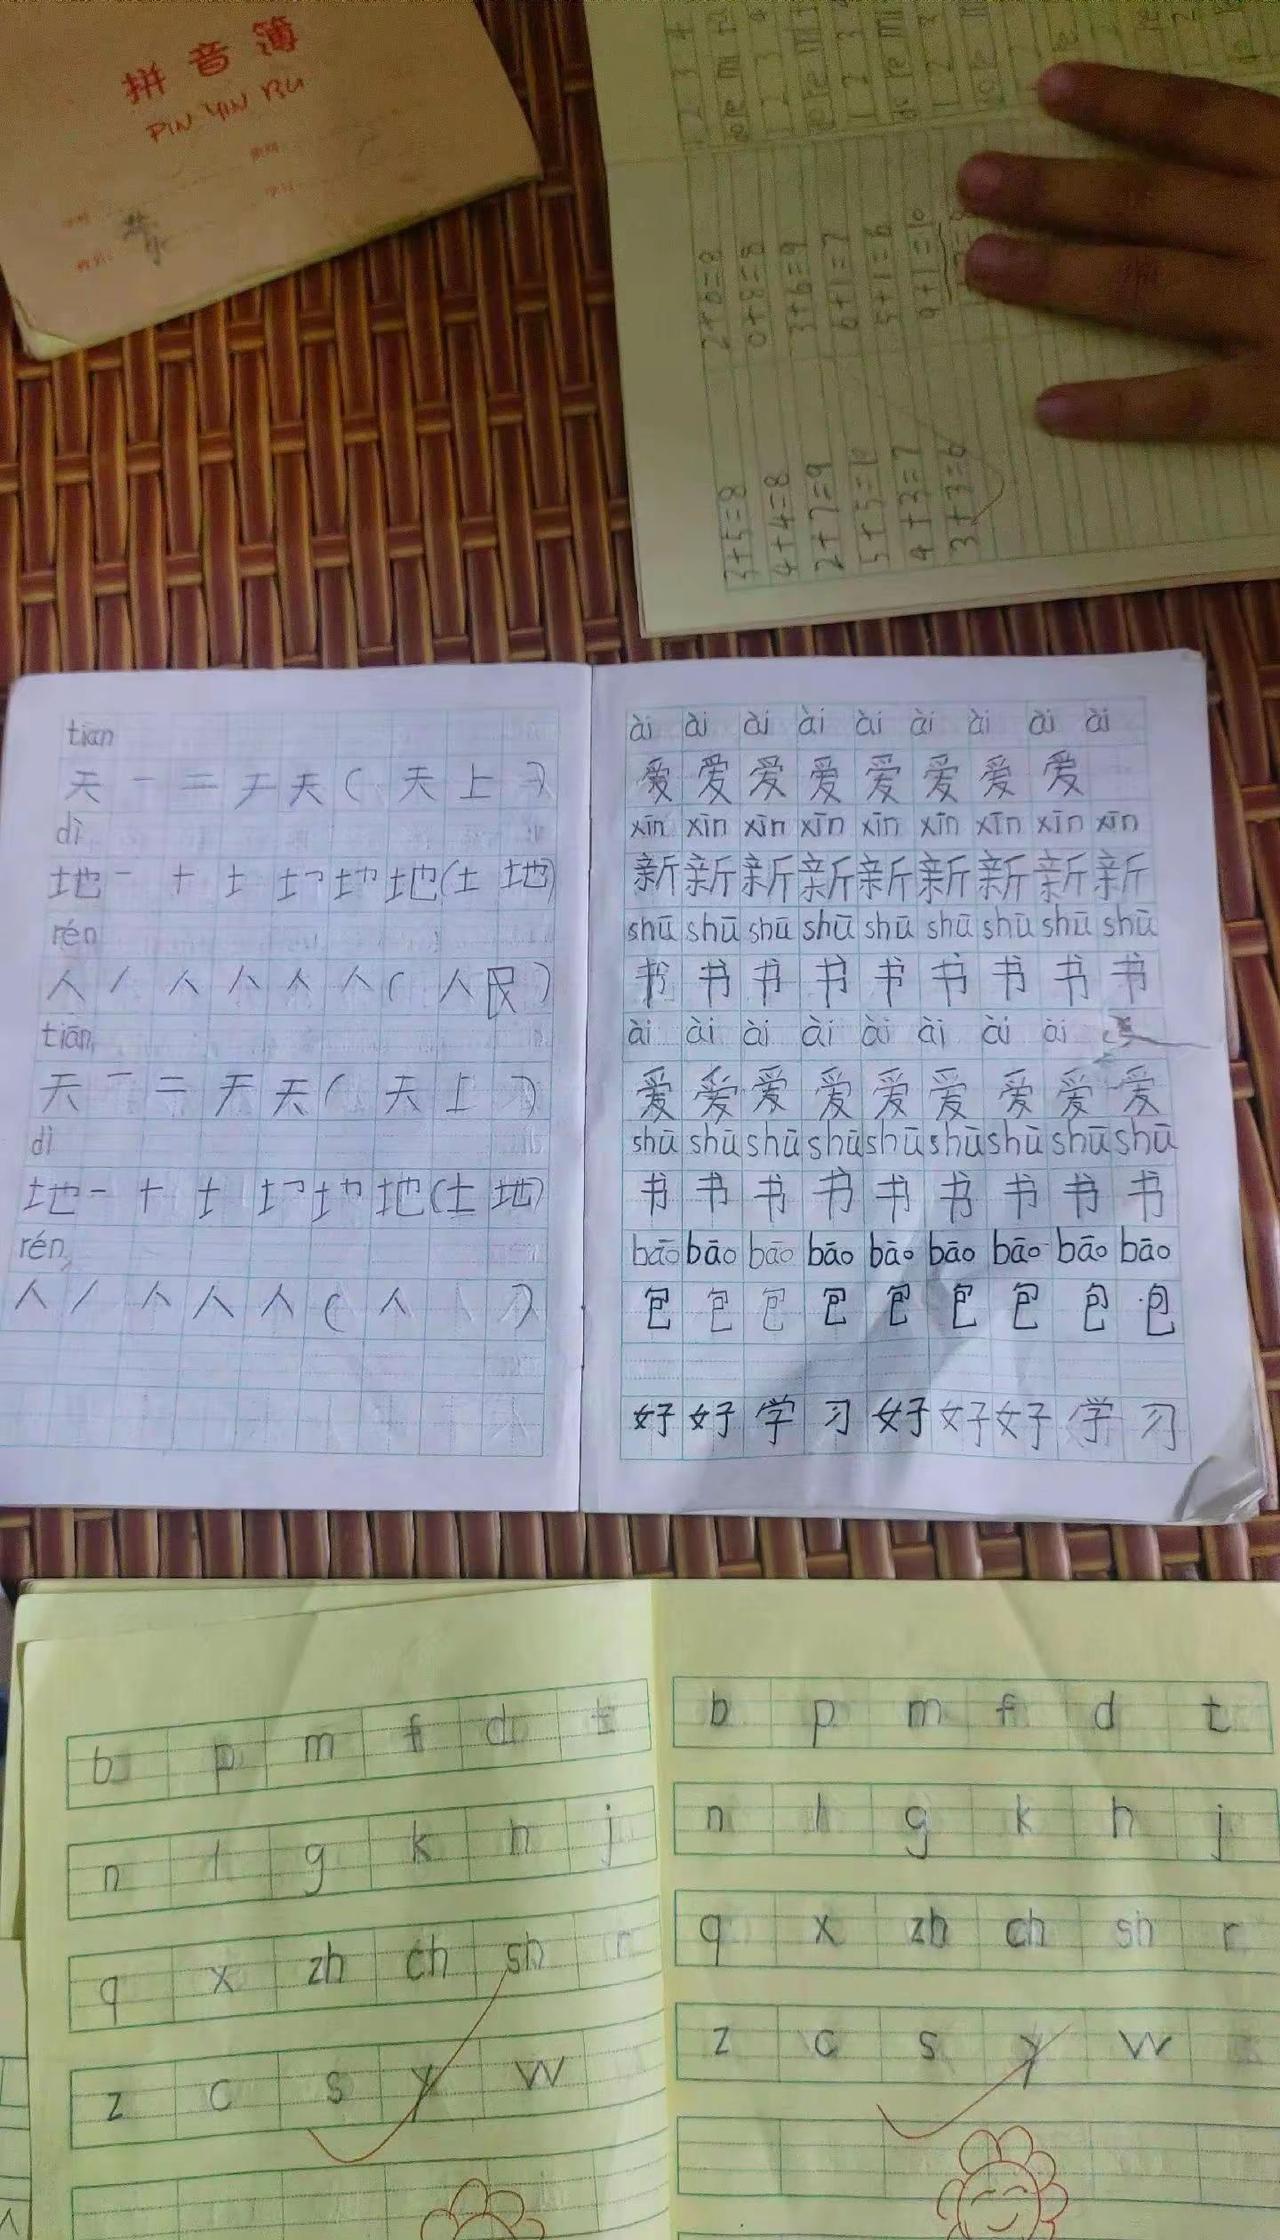 拼音簿
PIN YIN BU
3+5=8 2+6=8
4+4=8 0+8=8
2+7=9 3+6=9
5+5=10 6+1=7
4+3=7 5+1=6
3+3=6 9+1=10
tiān
天 一 二 于 天 ( 天 上 )
dì
地 一 十 土 地 ( 土 地 )
rén
人 丿 人 人 人 人 ( 人 民 )
tiān
天 一 二 于 天 ( 天 上 )
dì
地 一 十 土 地 ( 土 地 )
rén
人 丿 人 人 人 ( 人 )
ài ài ài ài ài ài ài ài ài
爱 爱 爱 爱 爱 爱 爱 爱
xīn xīn xīn xīn xīn xīn xīn xīn xīn
新 新 新 新 新 新 新 新 新
shū shū shū shū shū shū shū shū shū
书 书 书 书 书 书 书 书 书
ài ài ài ài ài ài ài ài
爱 爱 爱 爱 爱 爱 爱 爱 爱
shū shū shū shū shū shū shū shū shū
书 书 书 书 书 书 书 书 书
bāo bāo bāo bāo bāo bāo bāo bāo bāo
包 包 包 包 包 包 包 包 包
好 好 学 习 好 好 好 学 习
b p m f d t
n l g k h j
q x zh ch sh r
z c s y w
b p m f d t
n l g k h j
q x zh ch sh r
z c s y w